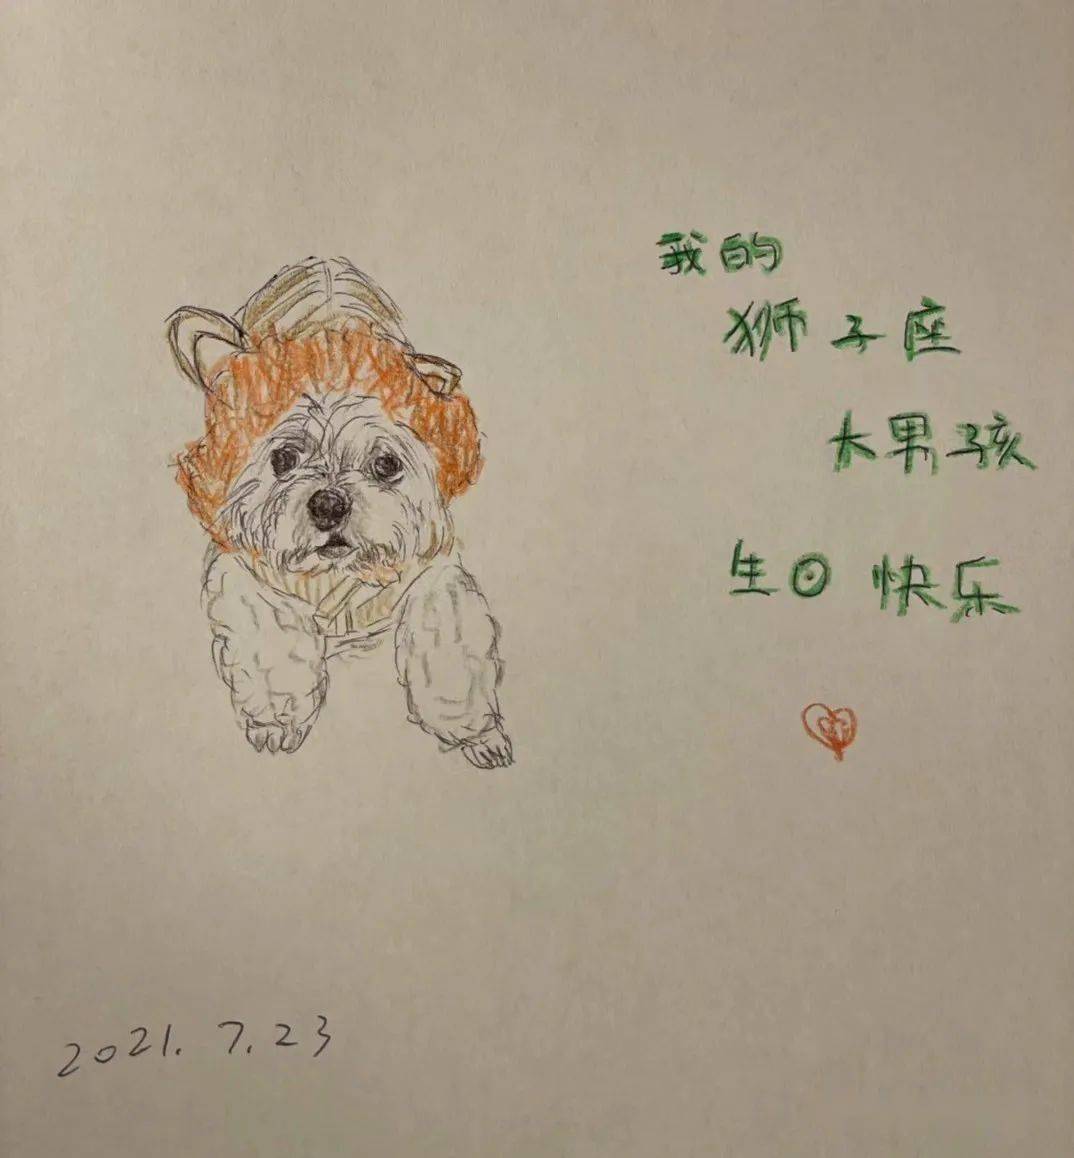 我的
狮子座
大男孩
生日快乐
2021.7.23